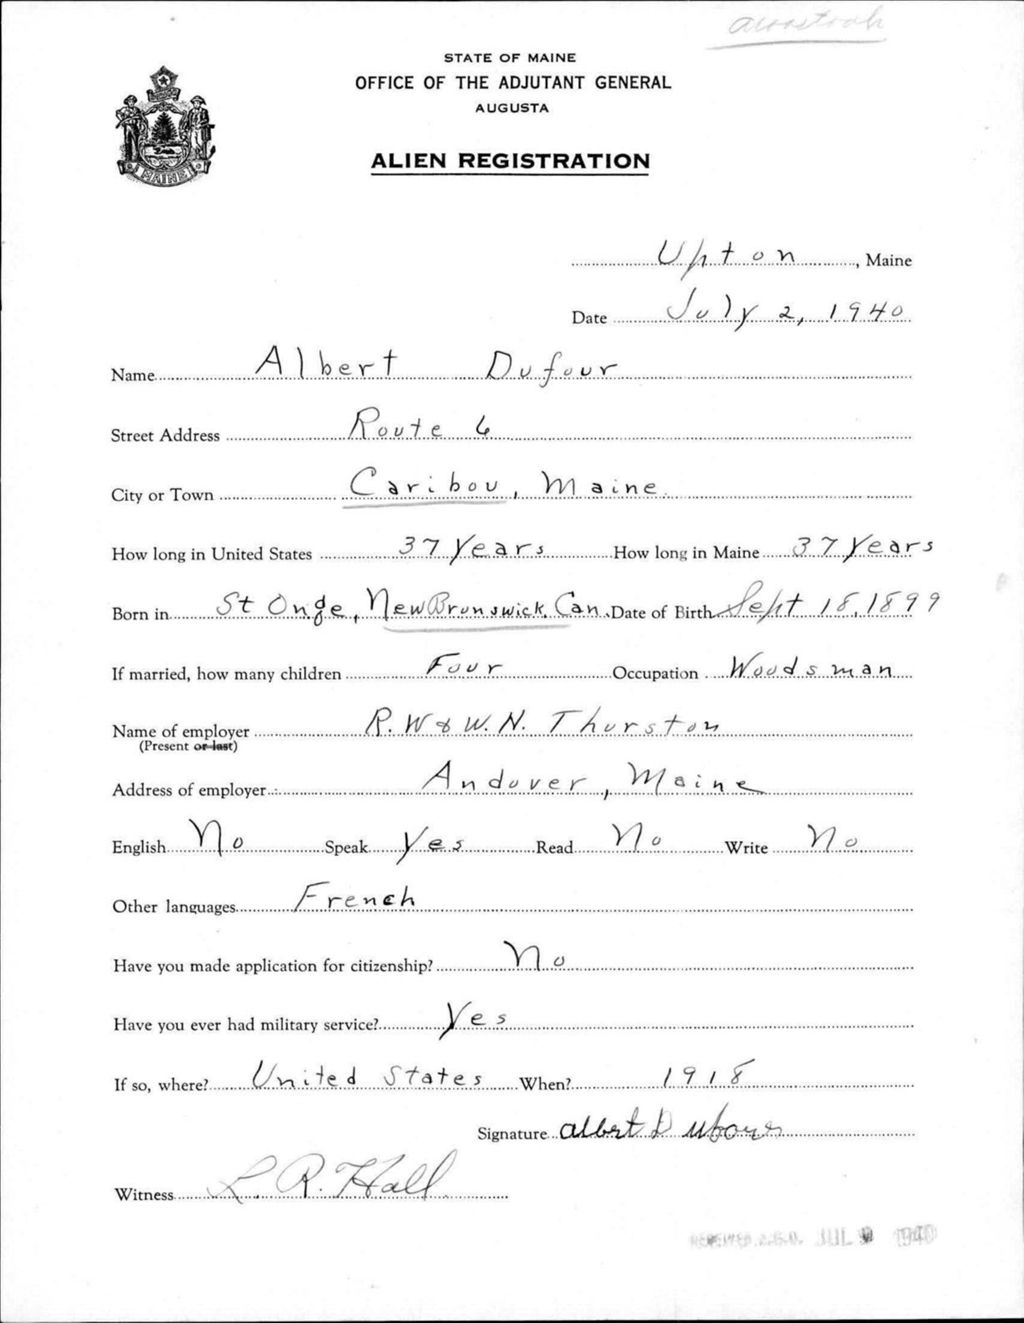 Aroostook
STATE OF MAINE
OFFICE OF THE ADJUTANT GENERAL
AUGUSTA
ALIEN REGISTRATION
MAINE
Upton, Maine
Date July 2, 1940
Name Albert Dufour
Street Address Route 6
City or Town Caribou, Maine
How long in United States 37 Years How long in Maine 37 Years
Born in St Onge, New Brunswick, Can. Date of Birth Sept 18, 1899
If married, how many children Four Occupation Woodsman
Name of employer R. W & W. N. Thurston
(Present or last)
Address of employer Andover, Maine
English No Speak Yes Read No Write No
Other languages French
Have you made application for citizenship? No
Have you ever had military service? Yes
If so, where? United States When? 1918
Signature Albert Dufour
Witness L. R. Hall
RECEIVED A.G.O. JUL 9 1940